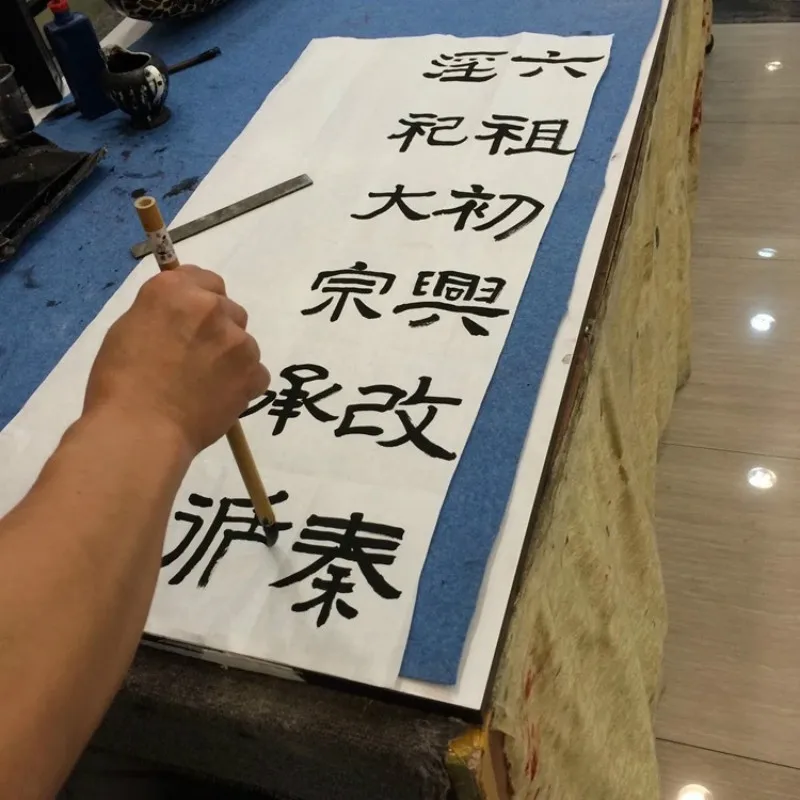 六祖初興改秦
淫祀大宗承